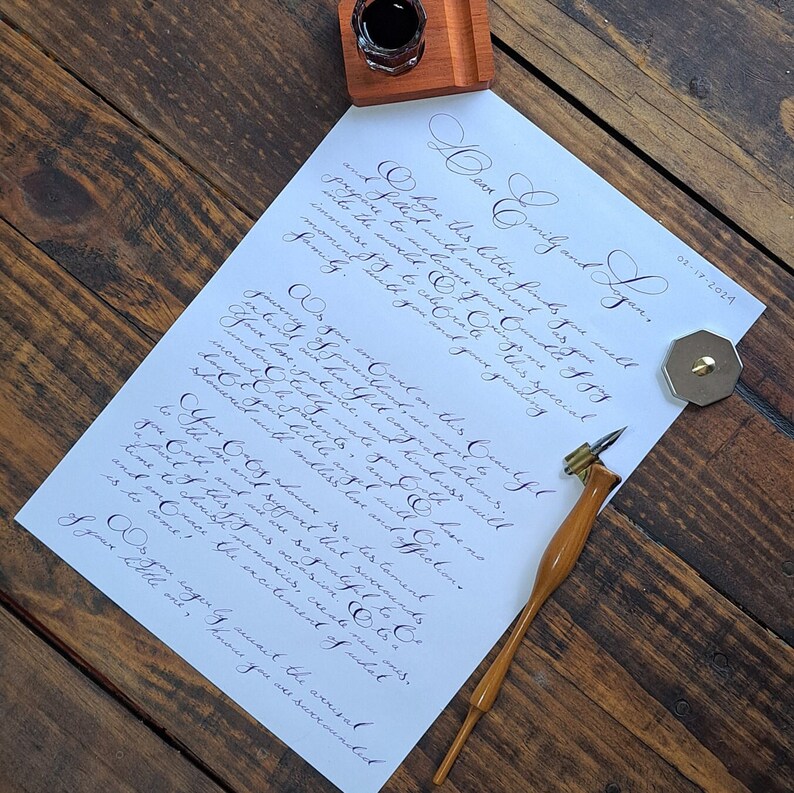 02-17-2024
Dear Emily and Ryan,
I hope this letter finds you well
and filled with excitement as you
prepare to welcome your bundle of joy
into the world. It brings me
immense joy to celebrate this special
moment with you and your growing
family.
As you embark on this beautiful
journey of parenthood, we want to
extend our heartfelt congratulations.
Your love, patience, and kindness will
undoubtedly make you both
incredible parents, and I have no
doubt your little angel will be
showered with endless love and affection.
Your baby shower is a testament
to the love and support that surrounds
you both and we are so grateful to be
a part of this joyous occasion. It's a
time to cherish memories, create new ones,
and embrace the excitement of what
is to come.
As you eagerly await the arrival
of your little one, know you are surrounded